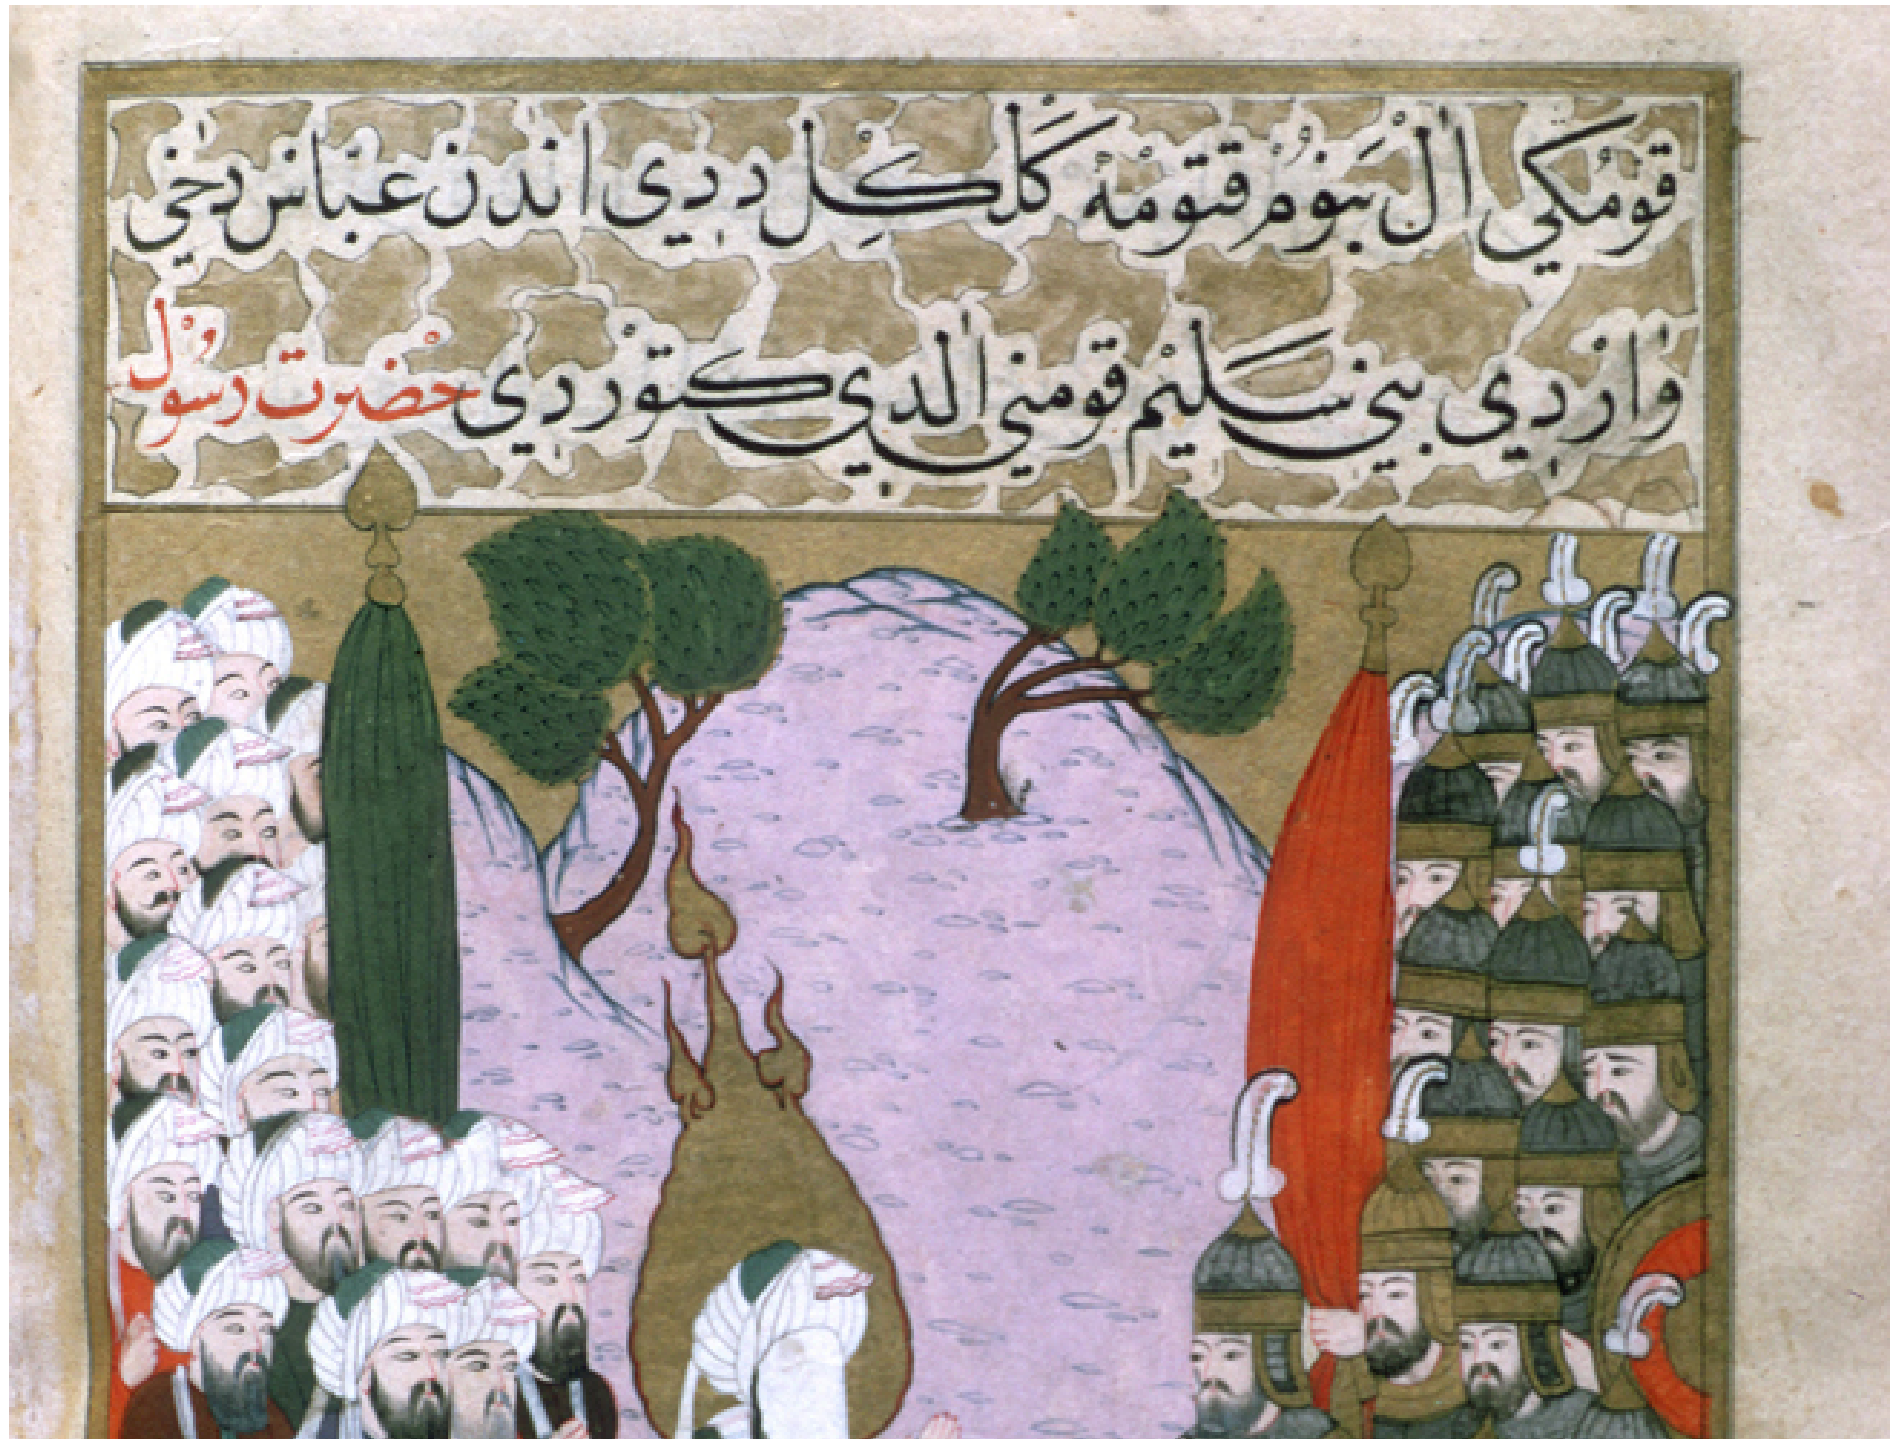 قومكي ال بنوم قتومه كل كل ددي اندن عباس دخي
واردي بني سليم قومني الدي كتوردي حضرت رسول